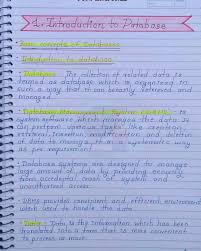 1. Introduction to Database
Basic concepts of Databases
Introduction to database
• Database :- The collection of related data is
termed as database which is organized in
such a way that it can be easily retrieved and
managed
• Database Management System (DBMS) :-
system software which manages the data. It
can perform various tasks like creation,
retrieval, insertion, modification and deletion
of data to manage it in a systematic way
as per requirement
• Database systems are designed to manage
large amount of data by providing security
from accidental crash of system and
unauthorised access
• DBMS provides convenient and efficient environment
which used to handle the data
• Data :- Data is the information which has been
translated into a form that is more convenient
to process or move.